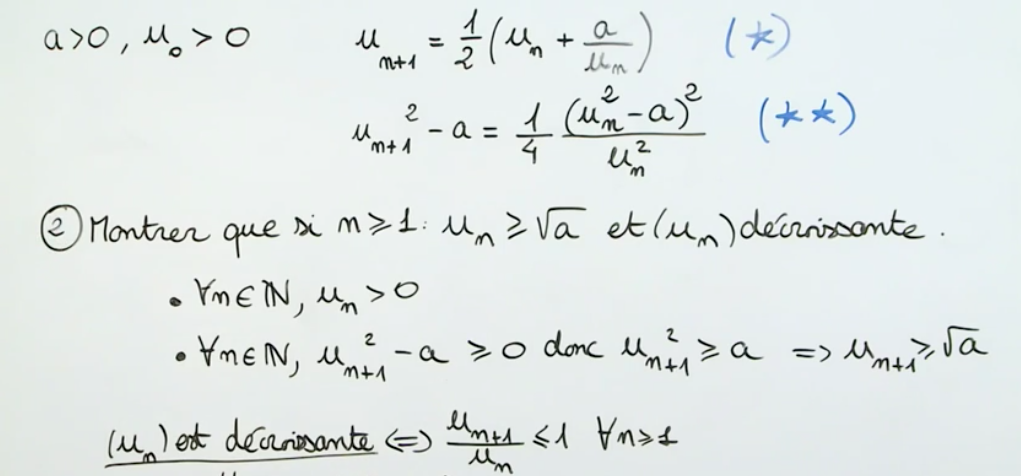 a>0, u₀>0 u_{n+1} = 1/2 (u_n + a/u_n) (*)
u_{n+1}² - a = 1/4 (u_n² - a)²/u_n² (**)
② Montrer que si n ≥ 1 : u_n ≥ √a et (u_n) décroissante.
• ∀n∈ℕ, u_n > 0
• ∀n∈ℕ, u_{n+1}² - a ≥ 0 donc u_{n+1}² ≥ a => u_{n+1} ≥ √a
(u_n) est décroissante <=> u_{n+1}/u_n ≤ 1 ∀n≥1